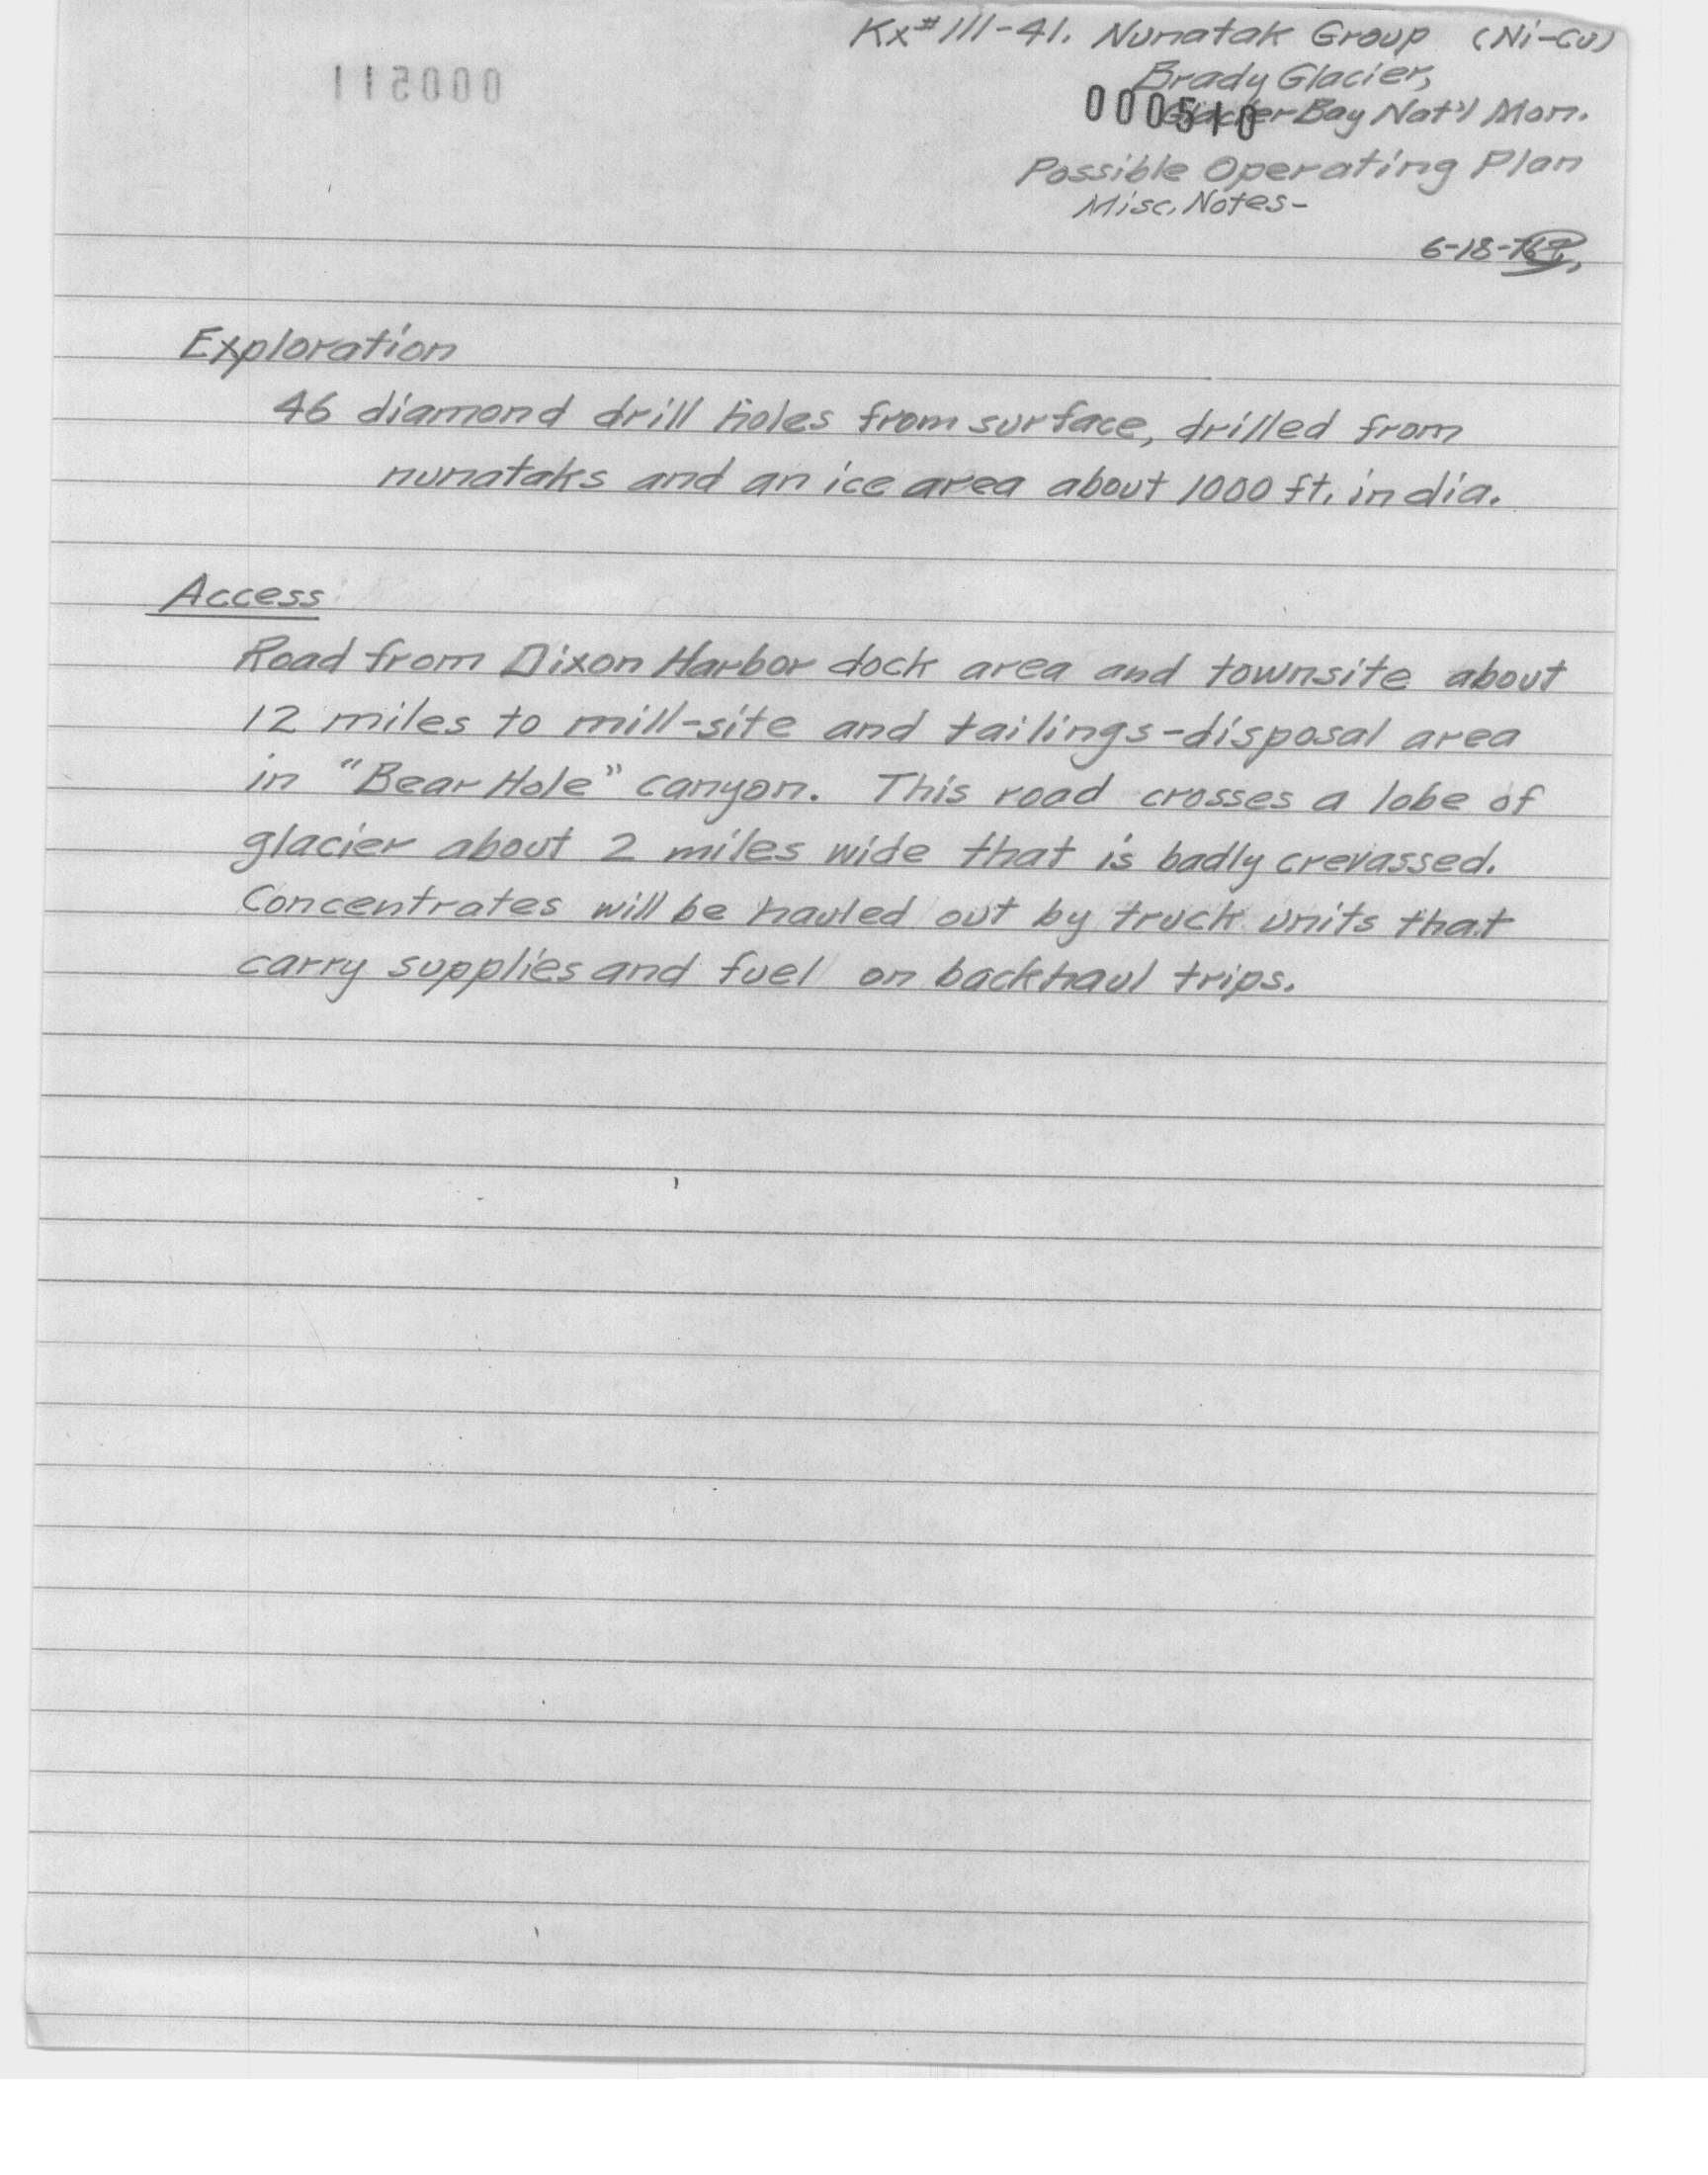 Kx# 111-41. Nunatak Group (Ni-Cu)
Brady Glacier,
000511
000510
Glacier Bay Nat'l Mon.
Possible Operating Plan
Misc. Notes-
6-18-
Exploration
46 diamond drill holes from surface, drilled from
nunataks and an ice area about 1000 ft. in dia.
Access
Road from Dixon Harbor dock area and townsite about
12 miles to mill-site and tailings-disposal area
in "Bear Hole" canyon. This road crosses a lobe of
glacier about 2 miles wide that is badly crevassed.
Concentrates will be hauled out by truck units that
carry supplies and fuel on backhaul trips.